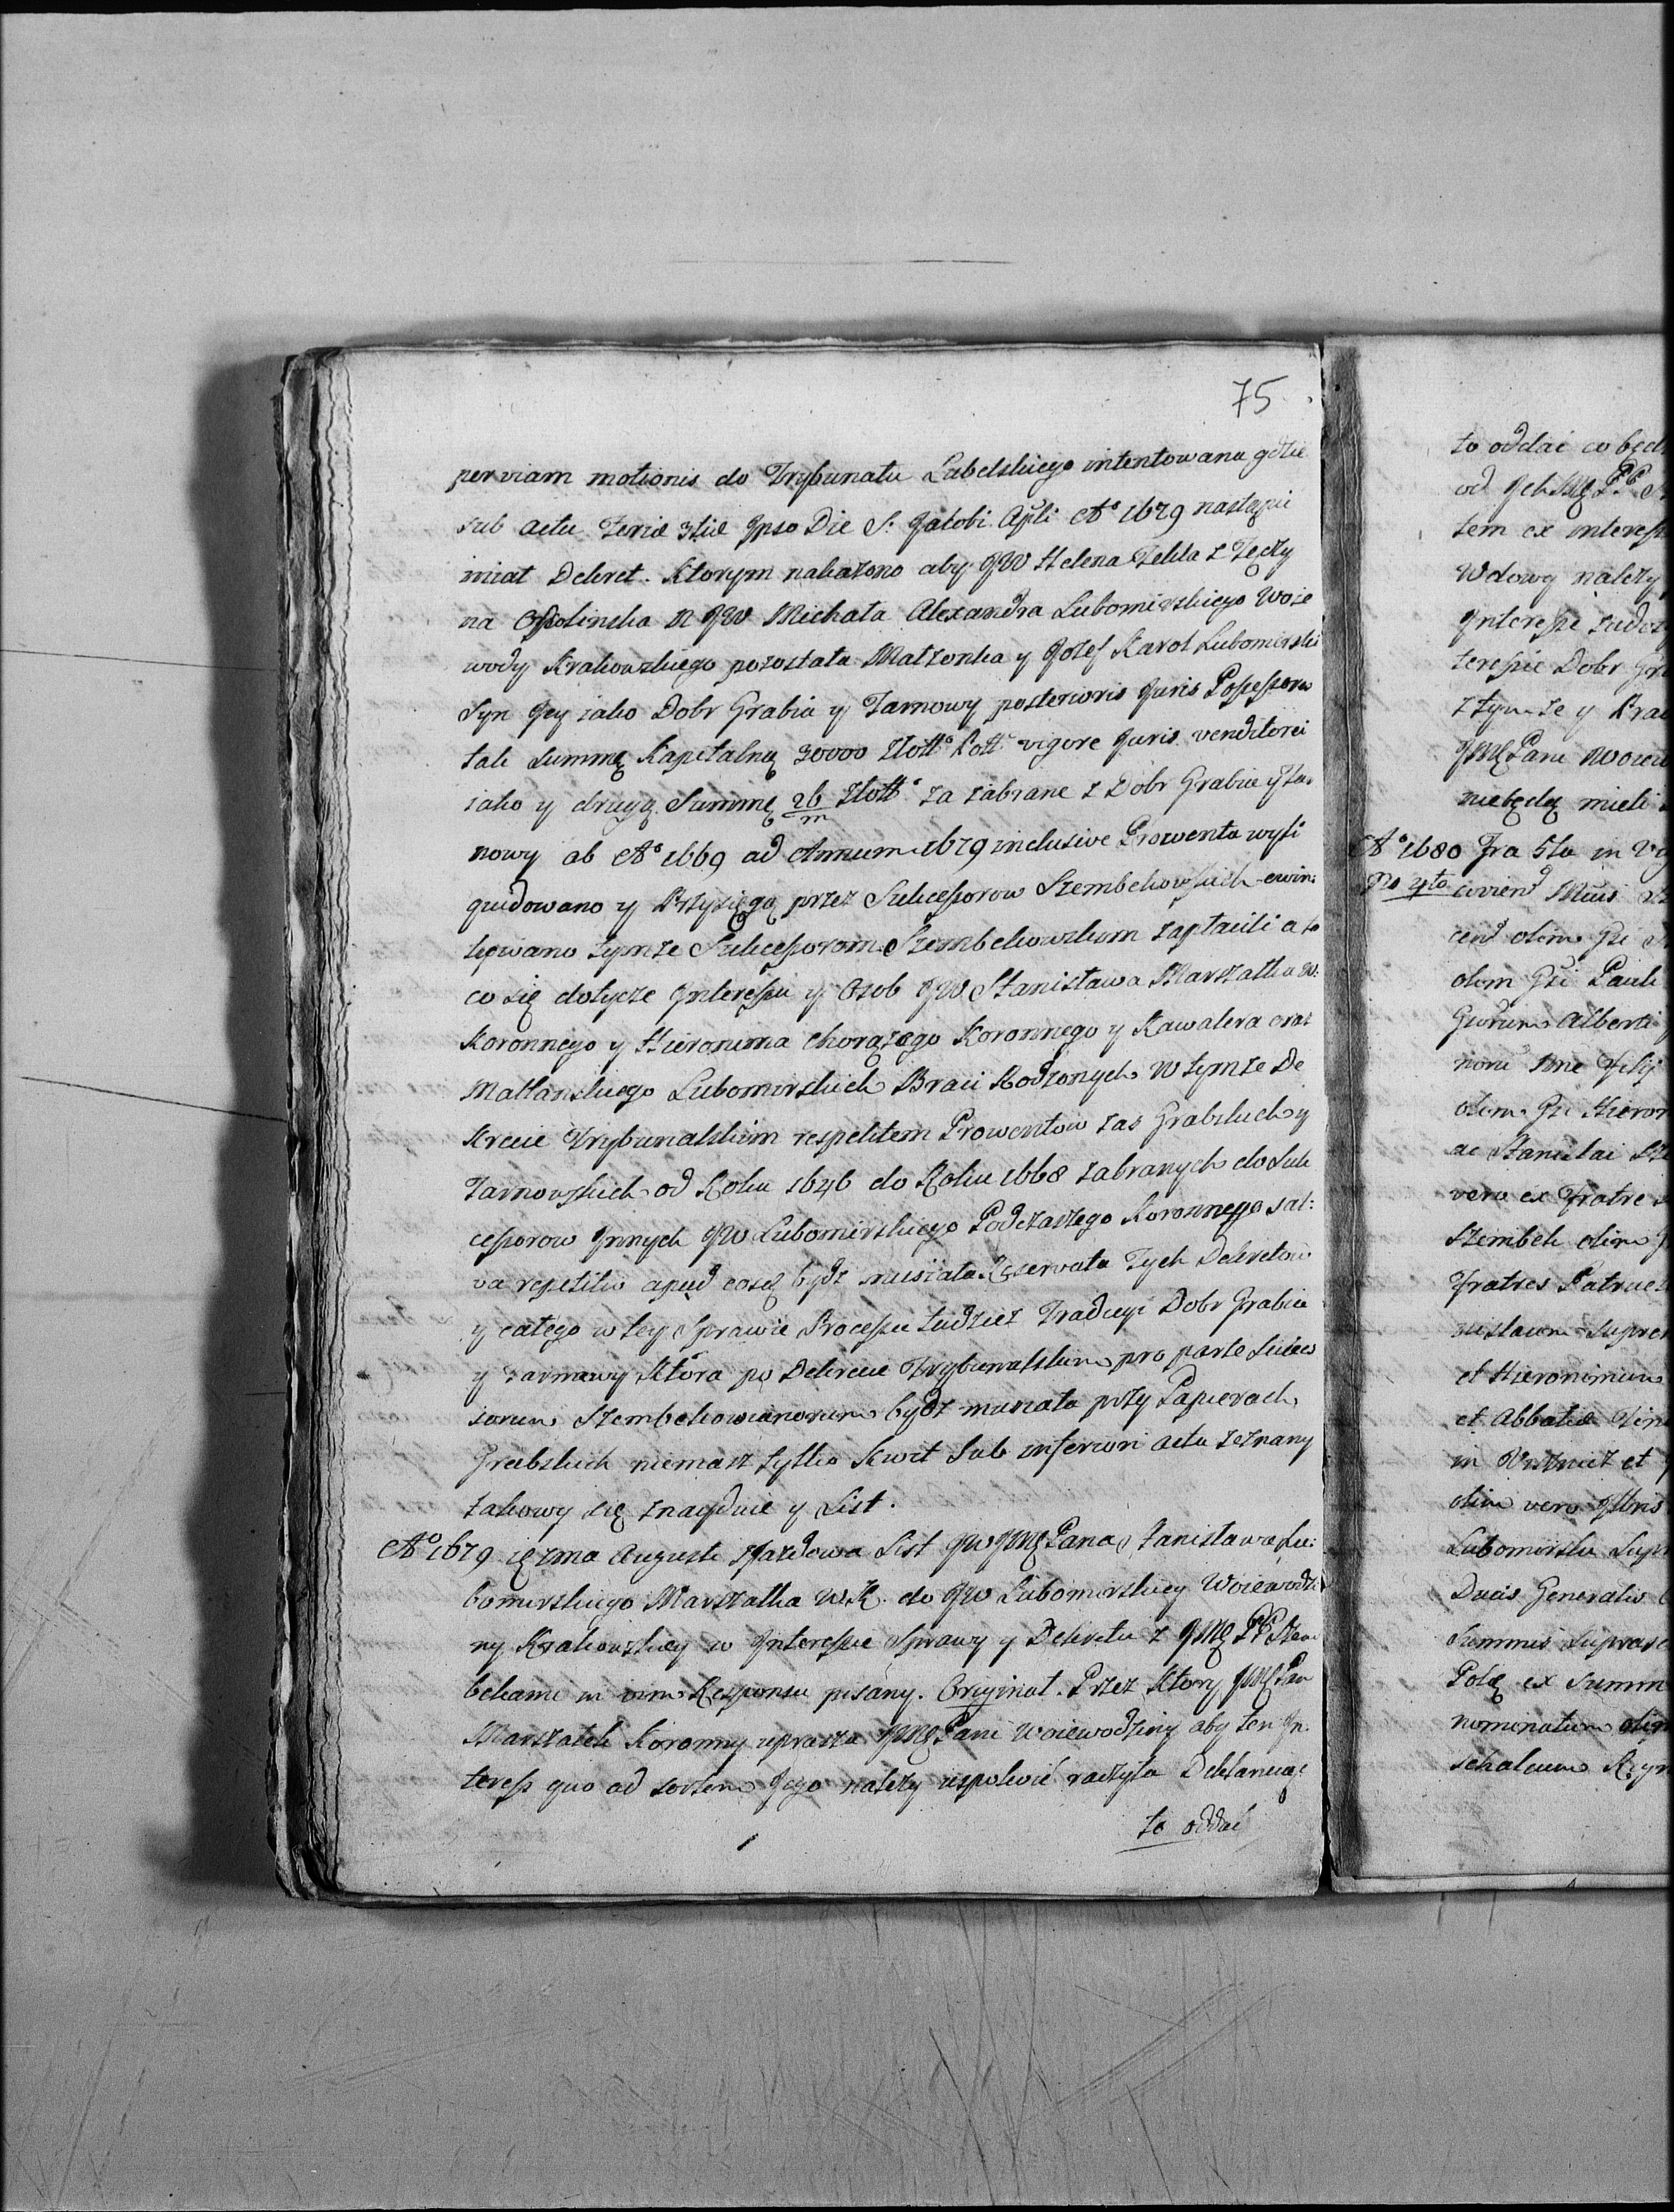 75
per viam motionis do Trybunału Lubelskiego intentowana gdzie
sub actu Feriæ 3tiæ Ipso Die S. Jakobi Apli Aº 1679 nastąpić
miał Dekret. Ktorym nakazono aby JW Helena Tekla z Tęczy
na Ossolinska N JW Michała Alexandra Lubomirskiego Woie
wody Krakowskiego pozostała Małzonka y Jozef Karol Lubomirski
Syn Jey iako Dobr Grabia y Tarnowy posterioris Juris Possessorow
tak Summę Kapitalną 30000 Złott Poll vigore Juris venditorei
iako y drugą Summę 26/m Złott za zabrane z Dobr Grabia y Ta.
nowy ab Aº 1669 ad Annum 1679 inclusive Prowenta wyli
quidowano y Przysięgą przez Sukcessorow Szembekowskich ewin:
kowano tymze Sukcessorom Szembekowskim zapłacili a to
co się dotycze Interessu y Osob JW Stanisława Marszałka W.
Koronnego y Hieronima Chorązego Koronnego y Kawalera oraz
Maltanskiego Lubomirskich Braci Rodzonych W tymze De
krecie Trybunalskim respektem Prowentow zas Grabskich y
Tarnowskich od Roku 1646 do Roku 1668 zabranych do Suk
cessorow Innych JW Lubomirskiego Podczaszego Koronnego sal:
va repetitio apud eosq bydz musiała Reservata Tych Dekretow
y całego w tey Sprawie Processu tudziez Tradycyi Dobr Grabia
y Tarnawy Ktora po Dekrecie Trybunalskim pro parte Succes
sorum Szembekowianorum bydz musiała przy Papierach
Grabskich niemasz tylko Kwit Sub inferiori actu zeznany
takowy się znayduie y List.
Aº 1679 21ma Augusti z Jazdowa List JW JMę Pana Stanisława Lu:
bomirskiego Marszałka W.K. do JW Lubomirskiey Woiewodzi
ny Krakowskiey w Interessie Sprawy y Dekretu z JMę PP Szem
bekami in vim Responsu pisany. Oryginał. Przez Ktory JMę Pan
Marszałek Koronny uprasza JMę Pani Woiewodziny aby ten In.
teress quo ad sortem Jego nalezy uspokoić raczyła Deklaruiąc
to oddac
to oddać co będ
od Ich Mę PP S
tem ex interess
Wdowy nalezy
Interesse
teressie Dobr Gr
z tym ze y Brac
JMę Pani Woiew
niebędą mieli
Aº 1680 Fra 5ta in
pro 4to
cend olim Gi
olim Gsi Pauli
Alberti
olim Gsi Hieron
ac Stanislai Sze
vero ex Fratre
Szembek olim
Fratres Patrueles
nislaum Suprem
et Hieronimum
et Abbatiæ Tine
in Wisnicz et
olim vero Illris
Lubomirski Supr
Ducis Generalis
Summis Suprasc
Polą ex Summ
nominatum olim
schalcum Regn